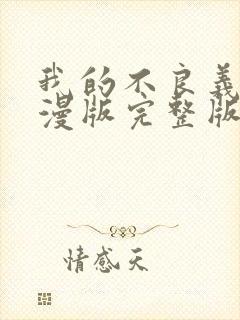 我的不良义
漫版完整版
情感天